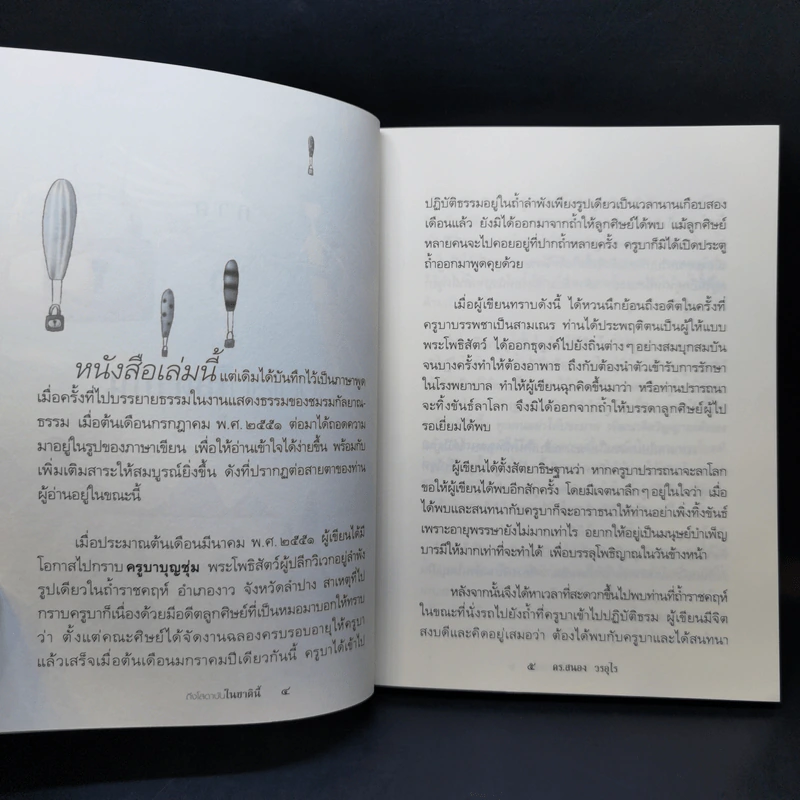 หนังสือเล่มนี้ แต่เดิมได้บันทึกไว้เป็นภาษาพูด
เมื่อครั้งที่ไปบรรยายธรรมในงานแสดงธรรมของชมรมกัลยาณ-
ธรรม เมื่อต้นเดือนกรกฎาคม พ.ศ. ๒๕๕๑ ต่อมาได้ถอดความ
มาอยู่ในรูปของภาษาเขียน เพื่อให้อ่านเข้าใจได้ง่ายขึ้น พร้อมกับ
เพิ่มเติมสาระให้สมบูรณ์ยิ่งขึ้น ดังที่ปรากฏต่อสายตาของท่าน
ผู้อ่านอยู่ในขณะนี้
เมื่อประมาณต้นเดือนมีนาคม พ.ศ. ๒๕๕๑ ผู้เขียนได้มี
โอกาสไปกราบ ครูบาบุญชุ่ม พระโพธิสัตว์ผู้ปลีกวิเวกอยู่ลำพัง
รูปเดียวในถ้ำราชคฤห์ อำเภองาว จังหวัดลำปาง สาเหตุที่ไป
กราบครูบาก็เนื่องด้วยมีอดีตลูกศิษย์ที่เป็นหมอมาบอกให้ทราบ
ว่า ตั้งแต่คณะศิษย์ได้จัดงานฉลองครบรอบอายุให้ครูบา
แล้วเสร็จเมื่อต้นเดือนมกราคมปีเดียวกันนี้ ครูบาได้เข้าไป
ถึงโสดาบันในชาตินี้ ๔
ปฏิบัติธรรมอยู่ในถ้ำลำพังเพียงรูปเดียวเป็นเวลานานเกือบสอง
เดือนแล้ว ยังมิได้ออกมาจากถ้ำให้ลูกศิษย์ได้พบ แม้ลูกศิษย์
หลายคนจะไปคอยอยู่ที่ปากถ้ำหลายครั้ง ครูบาก็มิได้เปิดประตู
ถ้ำออกมาพูดคุยด้วย
เมื่อผู้เขียนทราบดังนี้ ได้หวนนึกย้อนถึงอดีตในครั้งที่
ครูบาบรรพชาเป็นสามเณร ท่านได้ประพฤติตนเป็นผู้ให้แบบ
พระโพธิสัตว์ ได้ออกธุดงค์ไปยังถิ่นต่างๆ อย่างสมบุกสมบัน
จนบางครั้งทำให้ต้องอาพาธ ถึงกับต้องนำตัวเข้ารับการรักษา
ในโรงพยาบาล ทำให้ผู้เขียนฉุกคิดขึ้นมาว่า หรือท่านปรารถนา
จะทิ้งขันธ์ลาโลก จึงมิได้ออกจากถ้ำให้บรรดาลูกศิษย์ผู้ไป
รอเยี่ยมได้พบ
ผู้เขียนได้ตั้งสัตยาธิษฐานว่า หากครูบาปรารถนาจะลาโลก
ขอให้ผู้เขียนได้พบอีกสักครั้ง โดยมีเจตนาลึกๆ อยู่ในใจว่า เมื่อ
ได้พบและสนทนากับครูบาก็จะอาราธนาให้ท่านอย่าเพิ่งทิ้งขันธ์
เพราะอายุพรรษายังไม่มากเท่าไร อยากให้อยู่เป็นมนุษย์บำเพ็ญ
บารมีให้มากเท่าที่จะทำได้ เพื่อบรรลุโพธิญาณในวันข้างหน้า
หลังจากนั้นจึงได้หาเวลาที่สะดวกขึ้นไปพบท่านที่ถ้ำราชคฤห์
ในขณะที่นั่งรถไปยังถ้ำที่ครูบาเข้าไปปฏิบัติธรรม ผู้เขียนมีจิต
สงบดีและคิดอยู่เสมอว่า ต้องได้พบกับครูบาและได้สนทนา
๕ ดร.สนอง วรอุไร